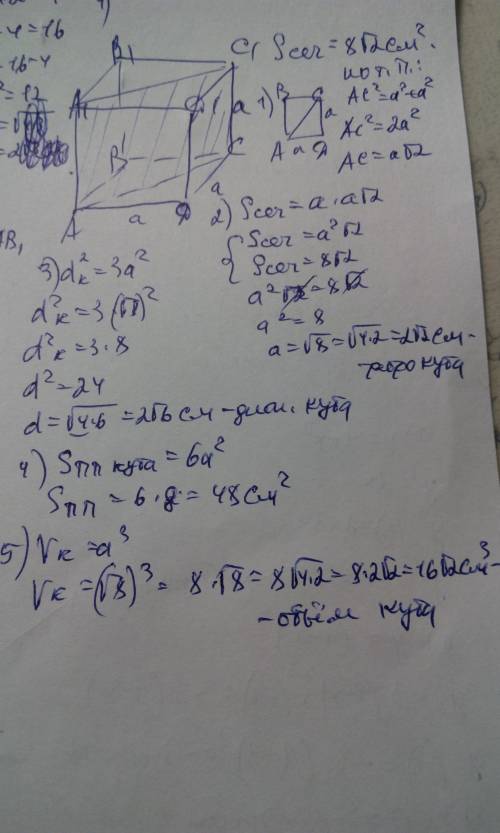 -4=16
16-4
²=12
B₁
C₁
A₁
D₁
a
B
C
A
a
D
a
Sсеч=8√2см².
по т. П.:
1)
B
C
A
a
D
a
AC²=a²+a²
AC²=2a²
AC=a√2
2) Sсеч=a·a√2
{Sсеч=a²√2
Sсеч=8√2
a²√2=8√2
a²=8
a=√8=√4·2=2√2см-
ребро куба
AB₁
3) dк²=3a²
dк²=3(√8)²
dк²=3·8
d²=24
d=√4·6=2√6см-диаг. куба
4) Sпп куба=6a²
Sпп=6·8=48см²
5) Vк=a³
Vк=(√8)³=8·√8=8√4·2=8·2√2=16√2см³-
-объём куба